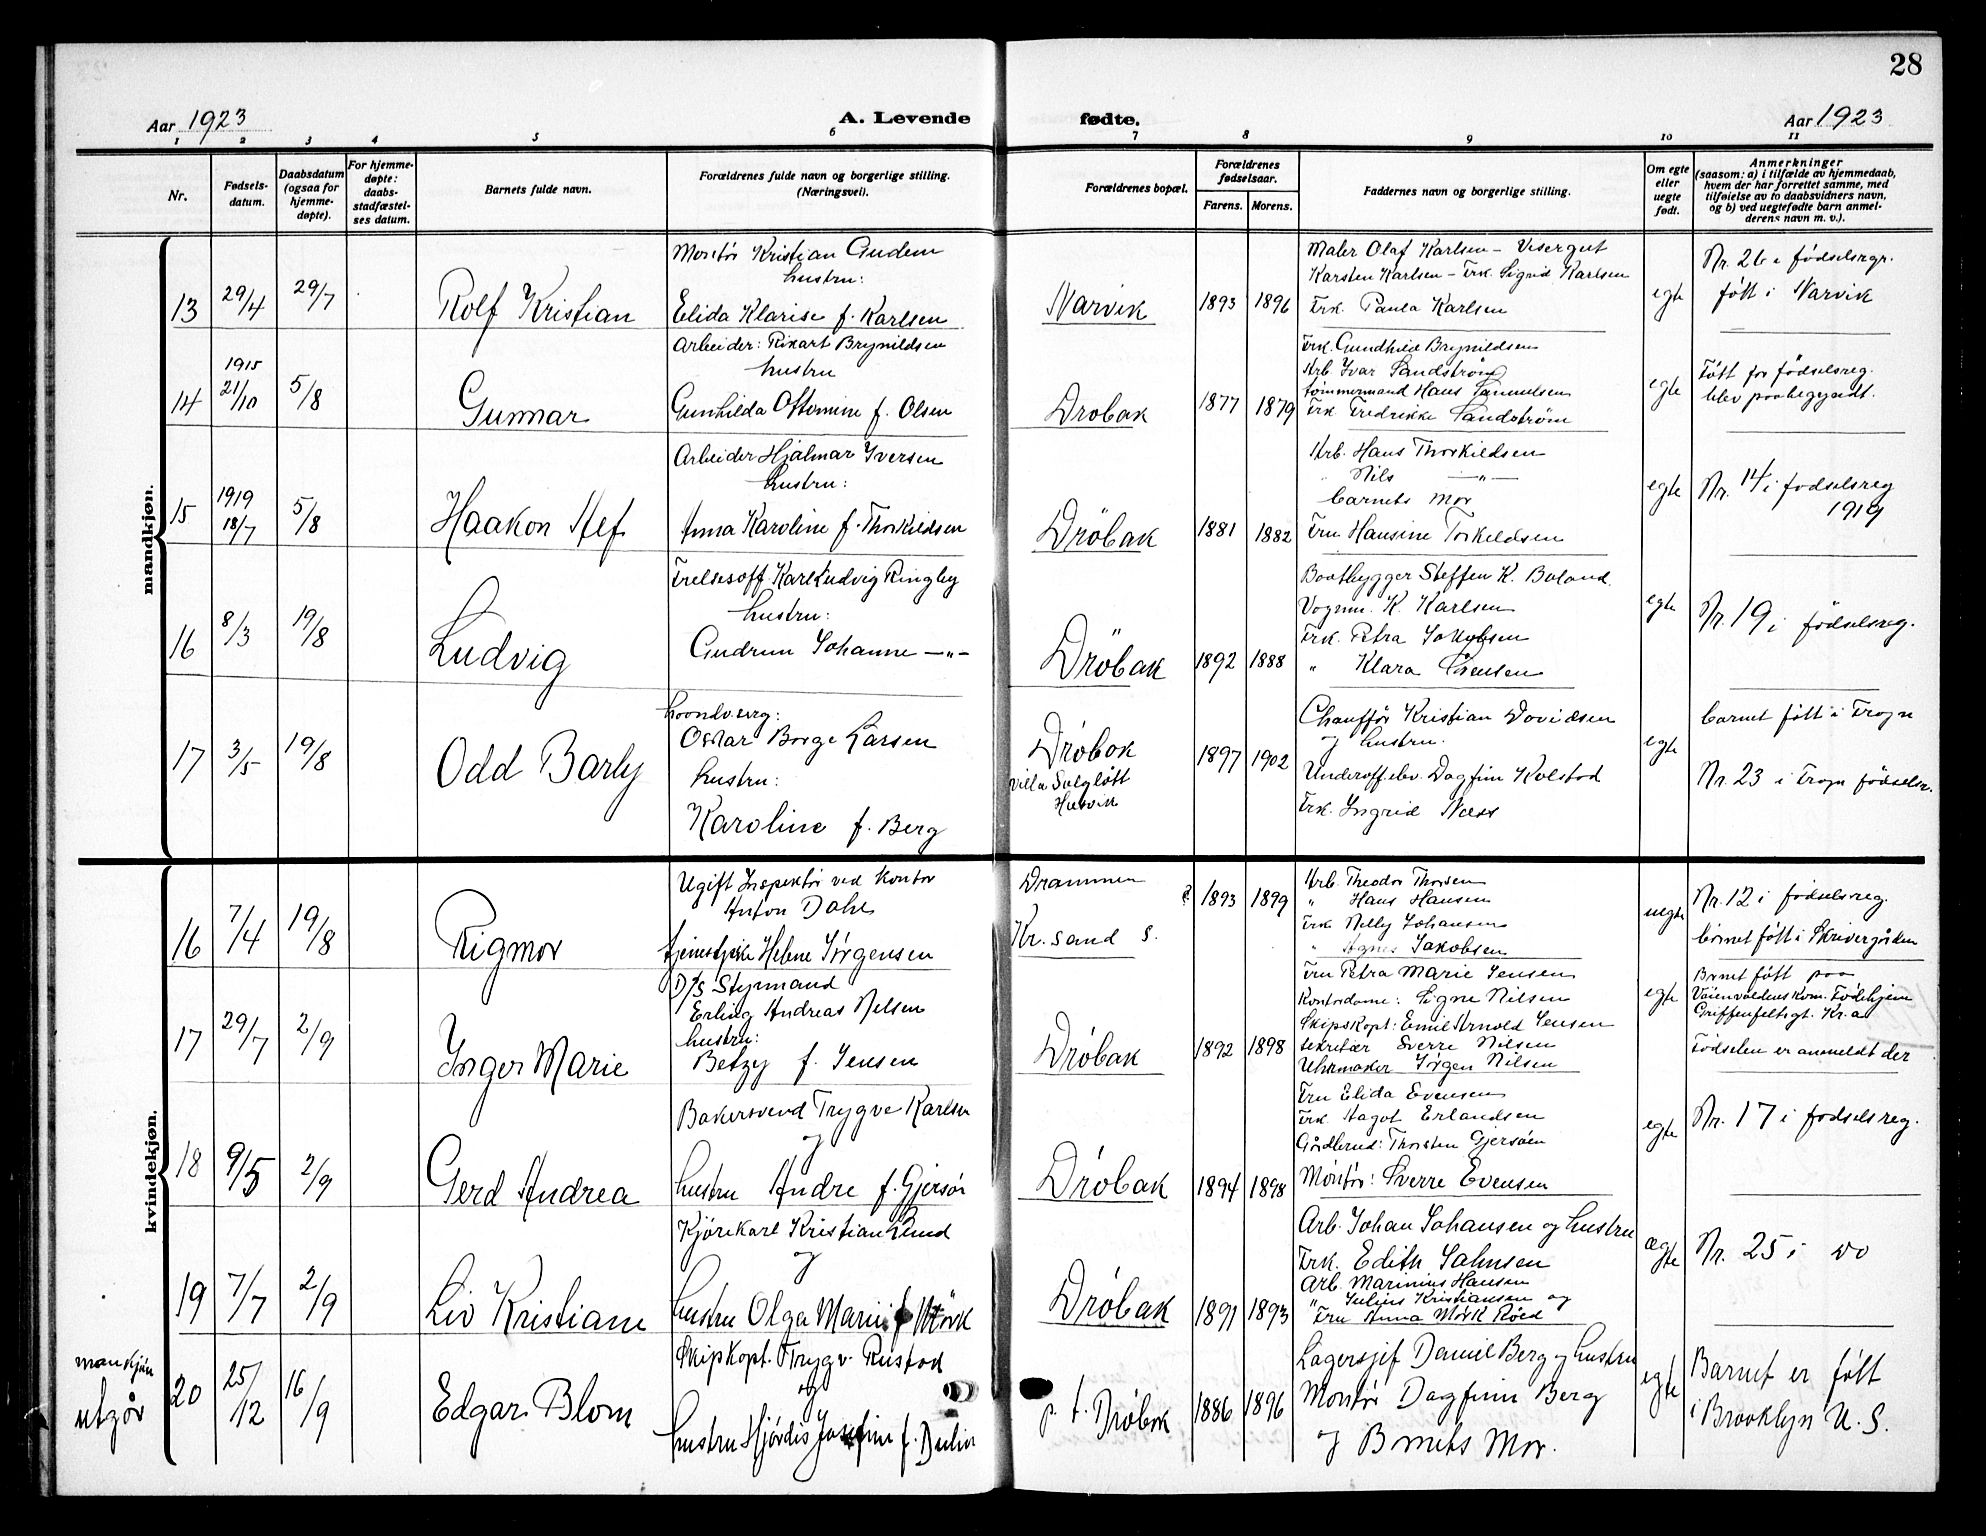 28
Aar 1923
A. Levende fødte.
Aar 1923
1 2 3 4 5 6 7 8 9 10 11
Nr.
Fødsels-
datum.
Daabsdatum
(ogsaa for
hjemme-
døpte).
For hjemme-
døpte:
daabs-
stadfæstel-
ses datum.
Barnets fulde navn.
Forældrenes fulde navn og borgerlige stilling.
(Næringsvei).
Forældrenes bopæl.
Forældrenes
fødselsaar.
Farens. Morens.
Faddernes navn og borgerlige stilling.
Om egte
eller
uegte
født.
Anmerkninger
(saasom: a) i tilfælde av hjemmedaab,
hvem der har forrettet samme, med
tilføielse av to daabsvidners navn,
og b) ved uegtefødte barn anmel-
derens navn m. v.).
mandkjøn.
13 29/4 29/7 Rolf Kristian
Montør Kristian Gudem
hustru:
Elida Klarise f. Karlsen
Narvik 1893 1896
Maler Olaf Karlsen - Visergut
Karsten Karlsen - Frk. Sigrid Karlsen
Frk. Paula Karlsen
egte
Nr. 26 i fødselsregr.
født i Narvik
14 1915 21/10 5/8 Gunnar
Arbeider: Rikart Brynildsen
hustru
Gunhilda Ottomine f. Olsen
Drøbak 1877 1879
Frk. Gundhild Brynildsen
Arb Ivar Sandstrøm
tømmermand Hans Samuelsen
Frk Fredrikke Sandstrøm
egte
Født før fødselsreg.
blev paabegyndt.
15 1919 18/7 5/8 Haakon Alf
Arbeider Hjalmar Iversen
hustru:
Anna Karoline f. Thorkildsen
Drøbak 1881 1882
Arb. Hans Thorkildsen
" Nils —"—
barnets mor
Fru Hansine Torkeldsen
egte
Nr. 14 i fødselsreg
1919
16 8/3 19/8 Ludvig
Frelsesoff. Karl Ludvig Ringby
hustru:
Gudrun Johanne —"—
Drøbak 1892 1888
Baatbygger Steffen K. Boland.
Vognm. K. Karlsen
Frk. Petra Jakobsen
" Klara Sørensen
egte
Nr. 19 i fødselsreg.
17 3/5 19/8 Odd Barly
haandverg:
Oskar Borge Larsen
hustru:
Karoline f. Berg
Drøbak
villa Solgløtt
Husvik
1897 1902
Chauffør Kristian Davidsen
og hustru.
Underoff.elev. Dagfinn Kolstad
Frk. Ingrid Næss
egte
barnet født i Frogn
Nr. 23 i Frogn fødselsr.
kvindekjøn.
16 7/4 19/8 Rigmor
Ugift Inspektør ved kontor
Anton Dahl
tjenestepike Helene Jørgensen
Drammen ?
Kr. sand S.
1893 1899
Arb. Theodor Thorsen
" Hans Hansen
Frk Nelly Johansen
" Agnes Jakobsen
uegte
Nr. 12 i fødselsreg.
barnet født i Skrivergården
17 29/7 2/9 Inger Marie
D/S Styrmand
Erling Andreas Nilsen
hustru:
Betzy f. Jensen
Drøbak 1892 1898
Fru Petra Marie Jensen
Kontordame: Signe Nilsen
Skipskapt: Emil Arnold Jensen
sekretær Sverre Nilsen
Uhrmaker Jørgen Nilsen
egte
Barnet født paa
Vaienvoldens Kom. Fødehjem
Griffenfeltsgt. Kr.a
Fødselen er anmeldt der
18 9/5 2/9 Gerd Andrea
Bakersvend Trygve Karlsen
og
hustru Andre f. Gjersøe
Drøbak 1894 1898
Fru Elida Evensen
Frk. Aagot Erlandsen
Gårdbrud: Thorsten Gjersøen
Montør: Sverre Evensen
egte
Nr. 17 i fødselsreg.
19 7/7 2/9 Liv Kristiane
Kjørekarl Kristian Lund
og
hustru Olga Marie f. Mørk
Drøbak 1891 1893
Arb. Johan Johansen og hustru
Frk. Edith Salmsen
Arb. Marinius Hansen
" Julius Kristiansen og
Fru Anna Mørk Røed
ægte
Nr. 25 i do
mankjøn
utgår
20 25/12 16/9 Edgar Blom
Skipkapt. Trygv. Rustad
og
hustru Hjørdis Josefine f.
p. t. Drøbak 1886 1896
Lagersjef Daniel Berg og hustru
Montør Dagfinn Berg
og Barnets Mor.
egte
Barnet er født
i Brooklyn U. S.